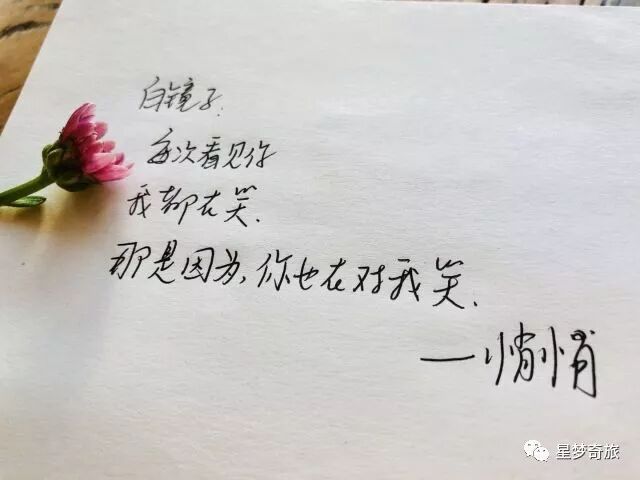 白镜子.
每次看见你
我都在笑.
那是因为,你也在对我笑.
——悄悄
星梦奇旅